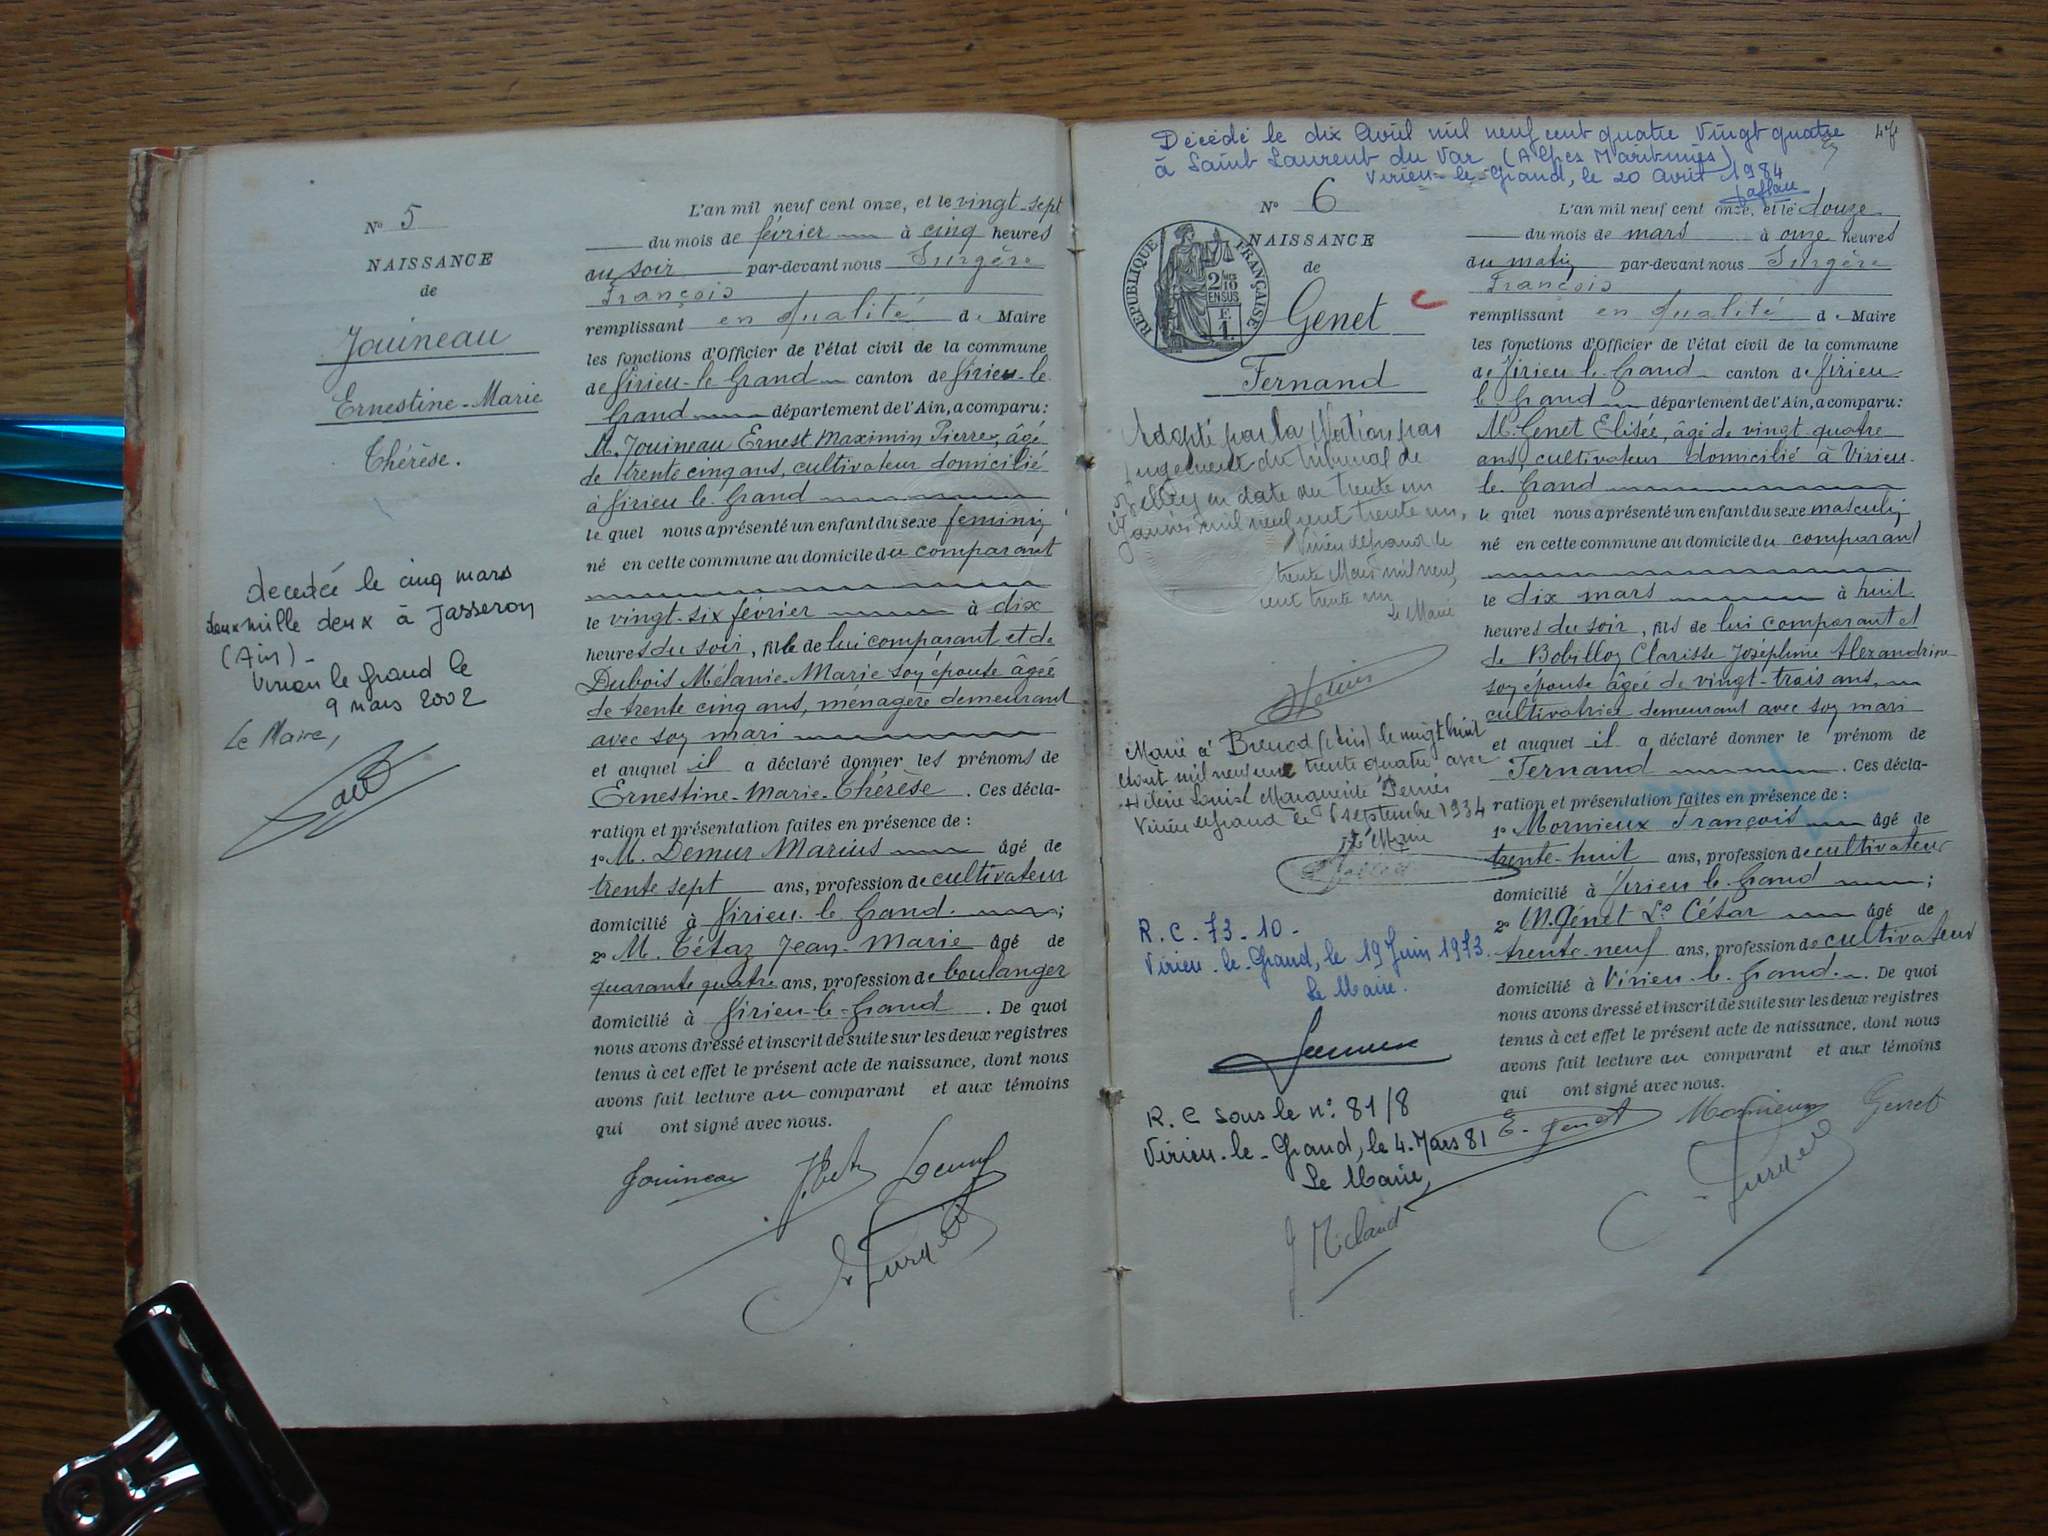 N° 5
NAISSANCE
de
Jouineau
Ernestine-Marie
Thérèse.
decedée le cinq mars
deux mille deux à Jasseron
(Ain)_
Virieu le Grand le
9 mars 2002
Le Maire,
L'an mil neuf cent onze, et le vingt-sept
du mois de février à cinq heures
du soir par-devant nous Surgère
François
remplissant en qualité de Maire
les fonctions d'Officier de l'état civil de la commune
de Virieu-le Grand canton de Virieu-le
Grand département de l'Ain, a comparu:
M. Jouineau Ernest Maximin Pierre, âgé
de trente cinq ans, cultivateur domicilié
à Virieu le Grand
lequel nous a présenté un enfant du sexe feminin
né en cette commune au domicile du comparant
le vingt-six février à dix
heures du soir, fille de lui comparant et de
Dubois Mélanie-Marie son épouse âgée
de trente cinq ans, ménagère demeurant
avec son mari
et auquel il a déclaré donner les prénoms de
Ernestine-Marie-Thérèse. Ces décla-
ration et présentation faites en présence de :
1° M. Demur Marius âgé de
trente sept ans, profession de cultivateur
domicilié à Virieu-le Grand. ;
2° M. Tétaz Jean-Marie âgé de
quarante quatre ans, profession de boulanger
domicilié à Virieu-le-Grand. De quoi
nous avons dressé et inscrit de suite sur les deux registres
tenus à cet effet le présent acte de naissance, dont nous
avons fait lecture au comparant et aux témoins
qui ont signé avec nous.
Jouineau
Décédé le dix Avril mil neuf cent quatre vingt quatre
à Saint Laurent du Var (Alpes Maritimes)
Virieu-le-Grand, le 20 Avril 1984
N° 6
RÉPUBLIQUE FRANÇAISE
NAISSANCE
de
Genet
Fernand
Adopté par la Nation par
jugement du tribunal de
Belley en date du trente un
Janvier mil neuf cent trente un,
Virieu le Grand le
trente Mars mil neuf
cent trente un
Le Maire
Marié à Brenod (Ain) le vingt huit
Aout mil neuf cent trente quatre avec
Hélène Louise Marguerite Perrier
Virieu le Grand le 1 septembre 1934
Le Maire
R.C. 73-10-
Virieu-le-Grand, le 19 Juin 1973.
Le Maire.
R.C sous le n° 81/8
Virieu-le-Grand, le 4 Mars 81
Le Maire,
L'an mil neuf cent onze, et le douze
du mois de mars à onze heures
du matin par-devant nous Surgère
François
remplissant en qualité de Maire
les fonctions d'Officier de l'état civil de la commune
de Virieu le Grand canton de Virieu
le Grand département de l'Ain, a comparu:
M. Genet Elisée, âgé de vingt quatre
ans, cultivateur domicilié à Virieu-
le Grand
lequel nous a présenté un enfant du sexe masculin
né en cette commune au domicile du comparant
le dix mars à huit
heures du soir, fils de lui comparant et
de Bobillon Clarisse Joséphine Alexandrine
son épouse âgée de vingt-trois ans,
cultivatrice demeurant avec son mari
et auquel il a déclaré donner le prénom de
Fernand. Ces décla-
ration et présentation faites en présence de :
1° Mornieux François âgé de
trente-huit ans, profession de cultivateur
domicilié à Virieu le Grand ;
2° M. Genet Ls César âgé de
trente-neuf ans, profession de cultivateur
domicilié à Virieu-le-Grand. De quoi
nous avons dressé et inscrit de suite sur les deux registres
tenus à cet effet le présent acte de naissance, dont nous
avons fait lecture au comparant et aux témoins
qui ont signé avec nous.
E. Genet Mornieux Genet